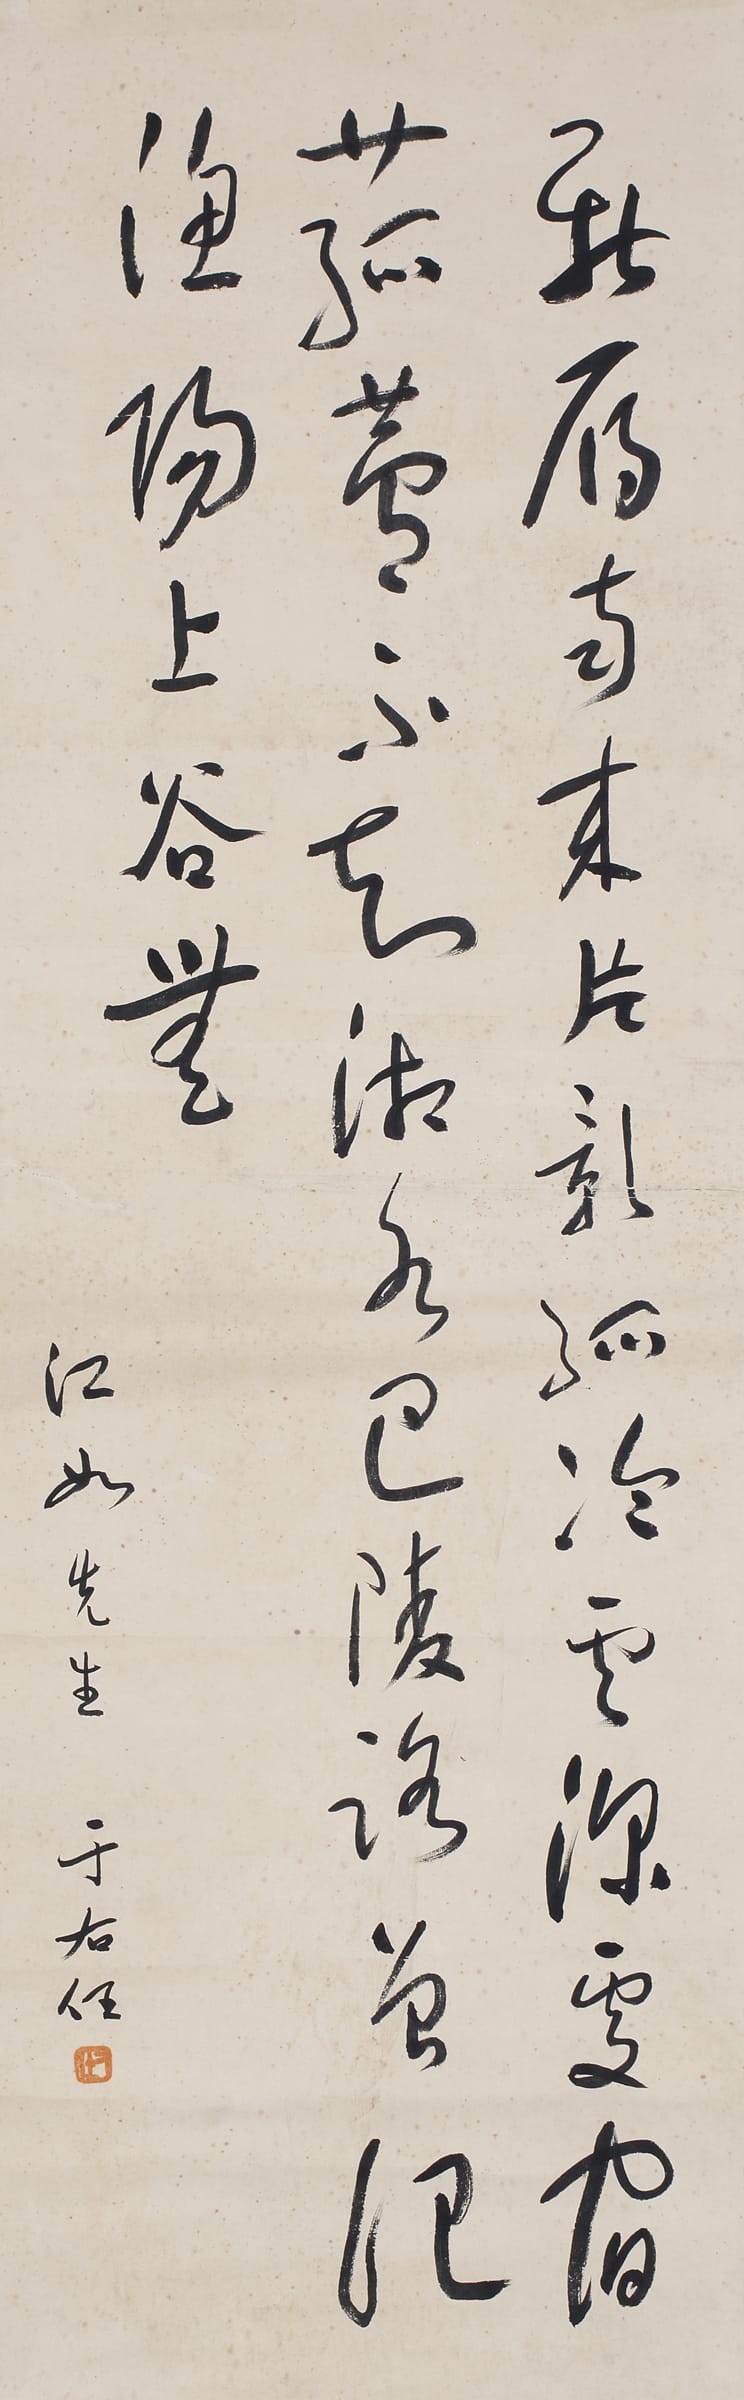 新雁南來片影孤冷雲深處宿
菰蘆不知湘水巴陵路曾記
漁陽上谷無
江如先生 于右任